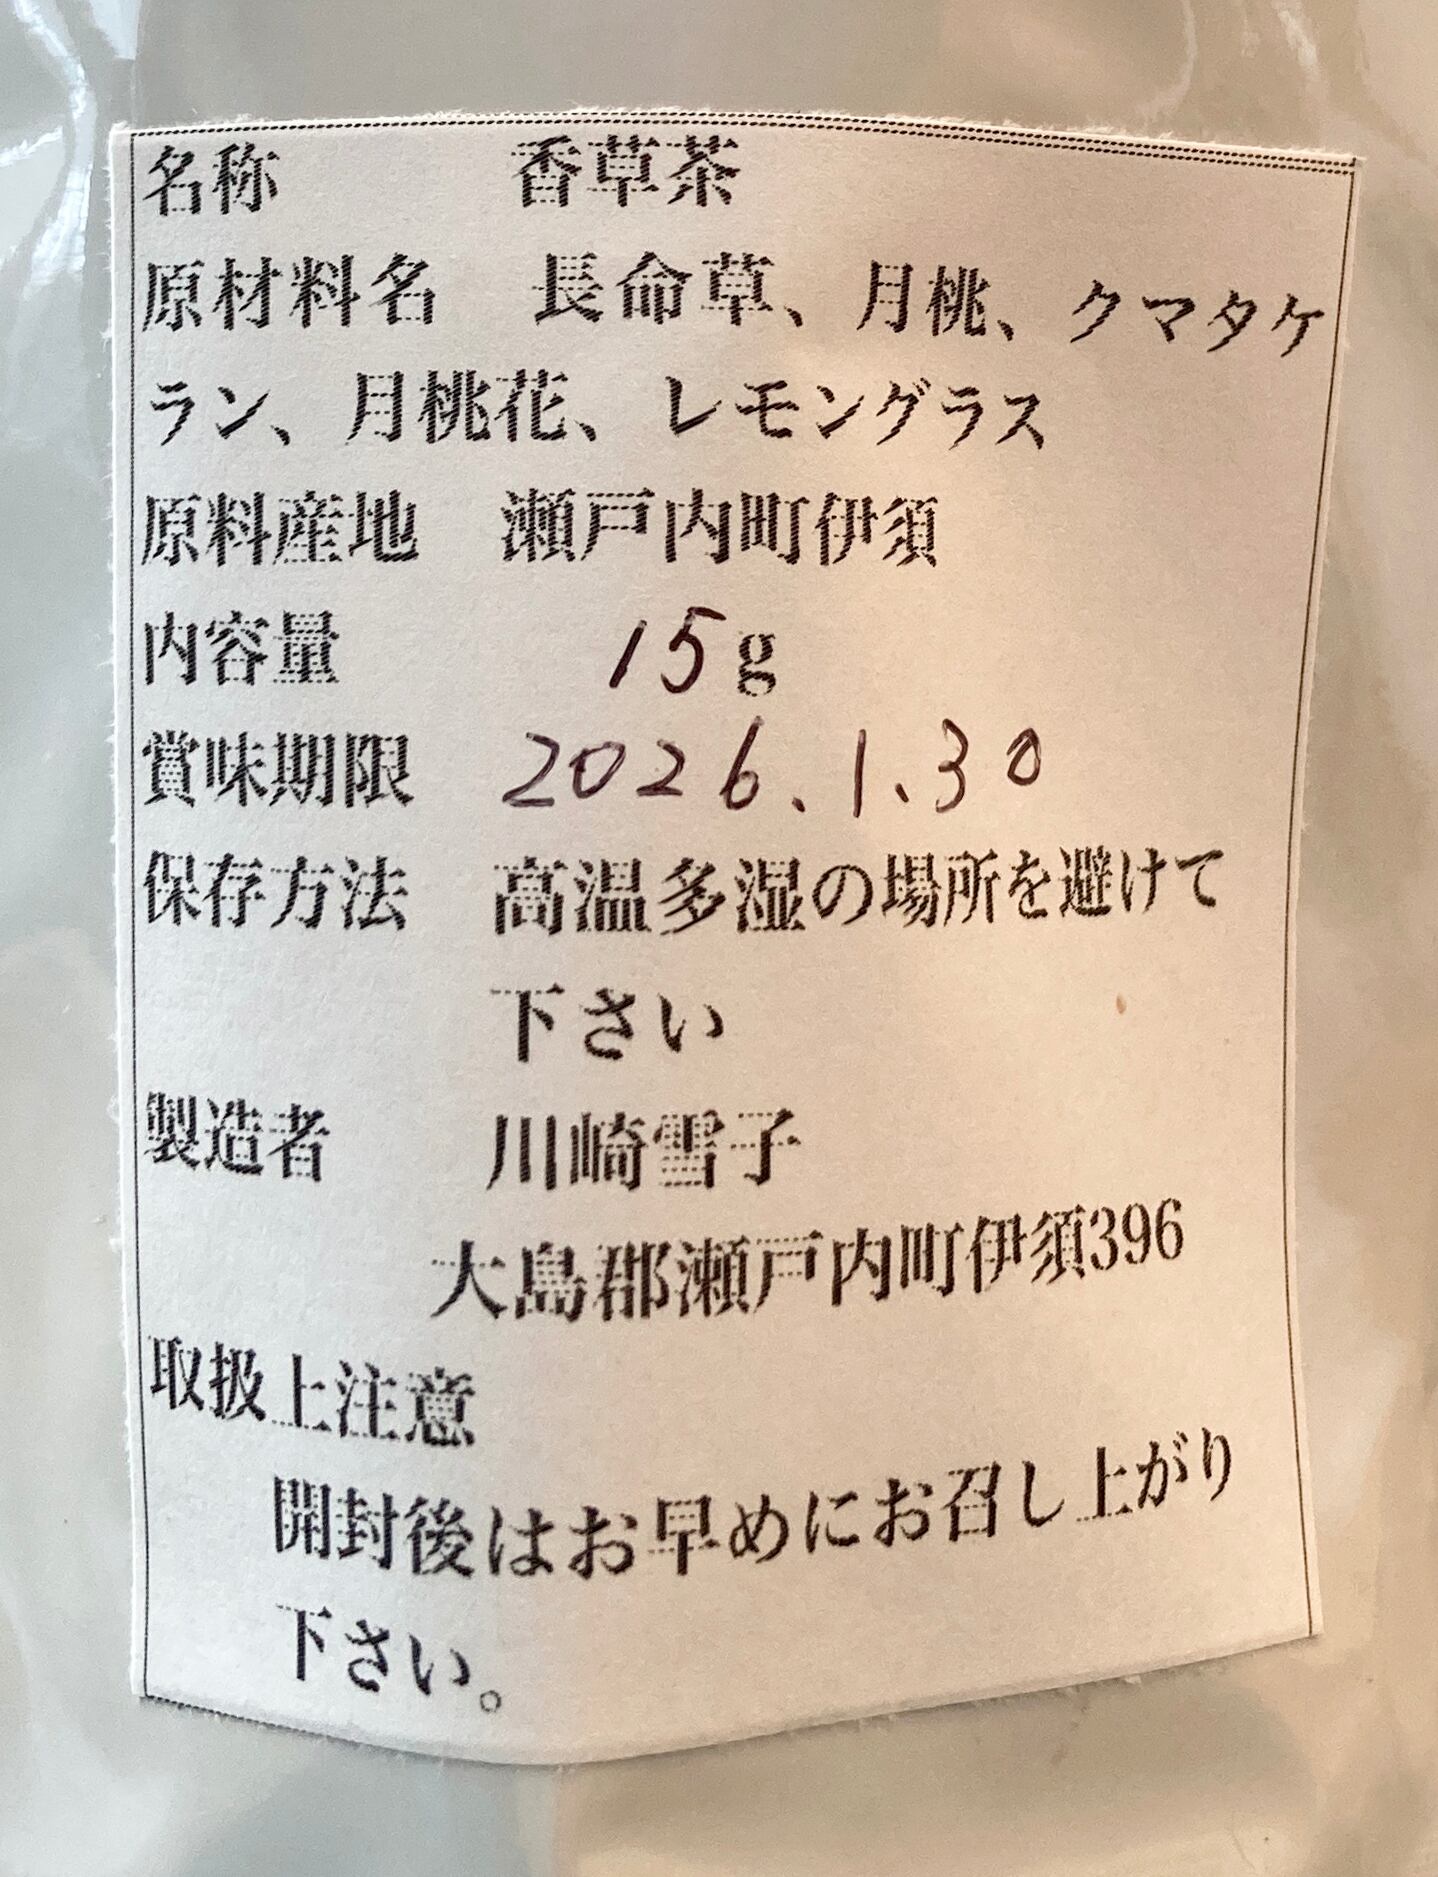 名称　香草茶
原材料名　長命草、月桃、クマタケ
ラン、月桃花、レモングラス
原料産地　瀬戸内町伊須
内容量　15g
賞味期限　2026.1.30
保存方法　高温多湿の場所を避けて
下さい
製造者　川崎雪子
大島郡瀬戸内町伊須396
取扱上注意
開封後はお早めにお召し上がり
下さい。